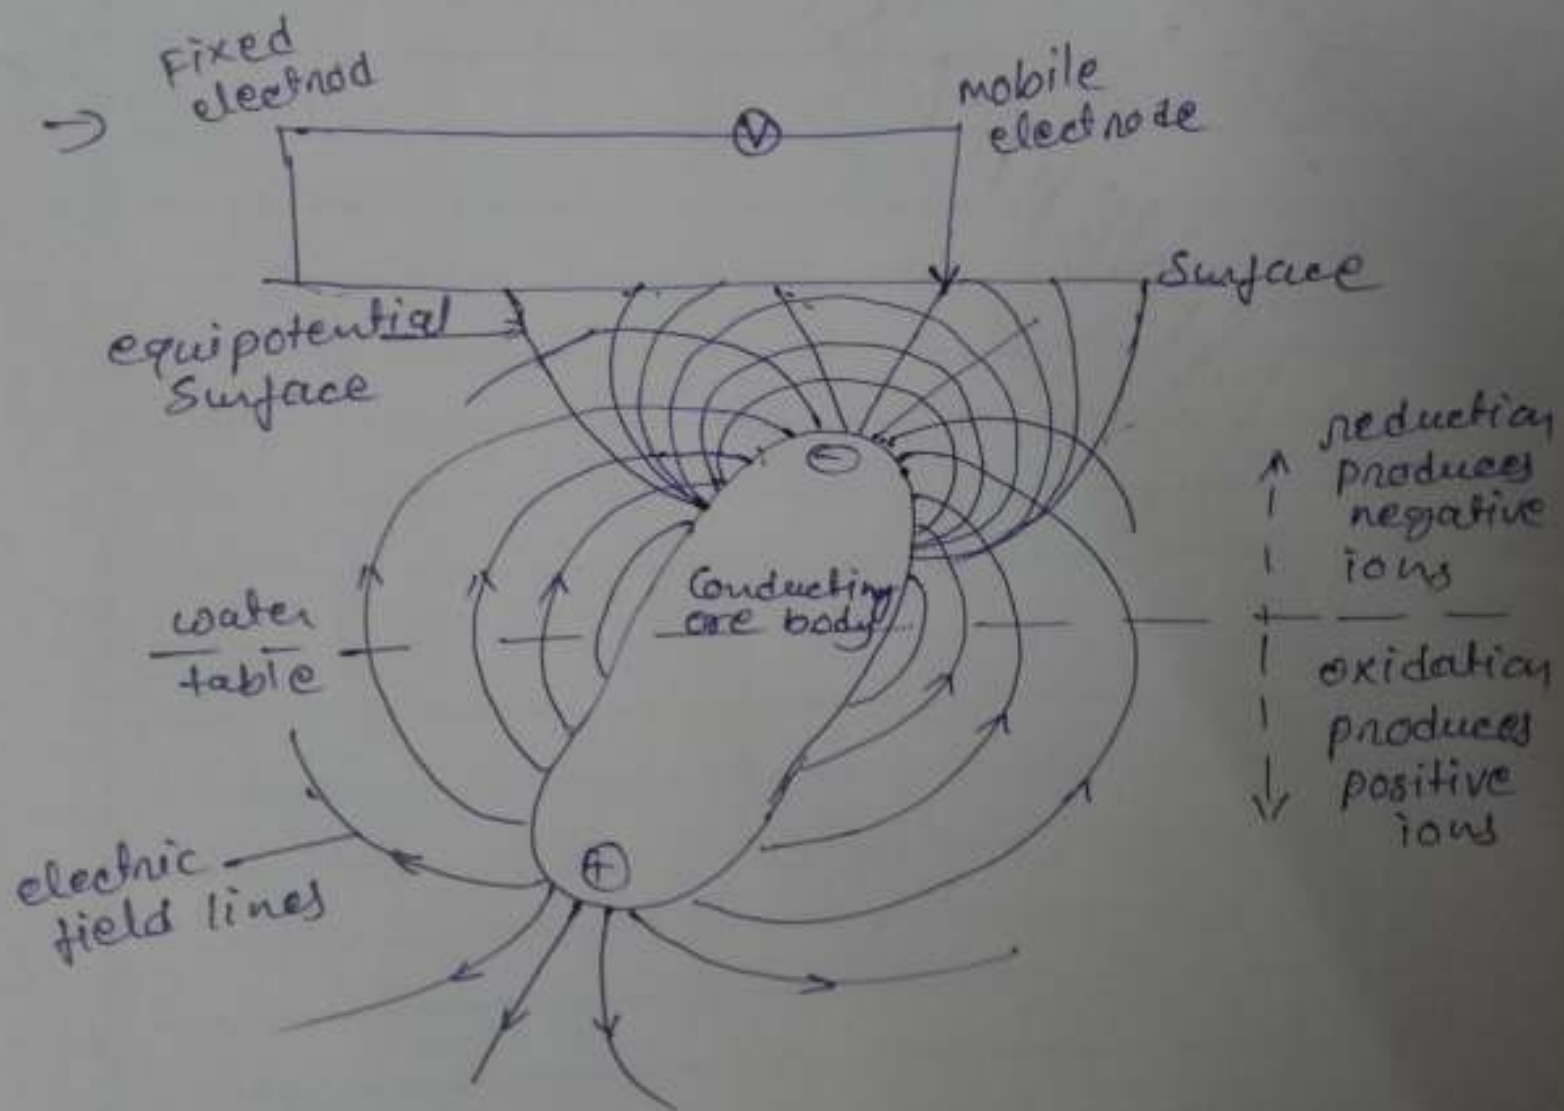 Fixed
electrod
V
mobile
electrode
Surface
equipotential
Surface
−
reduction
produces
negative
ions
Conducting
ore body
water
table
oxidation
produces
positive
ions
+
electric
field lines